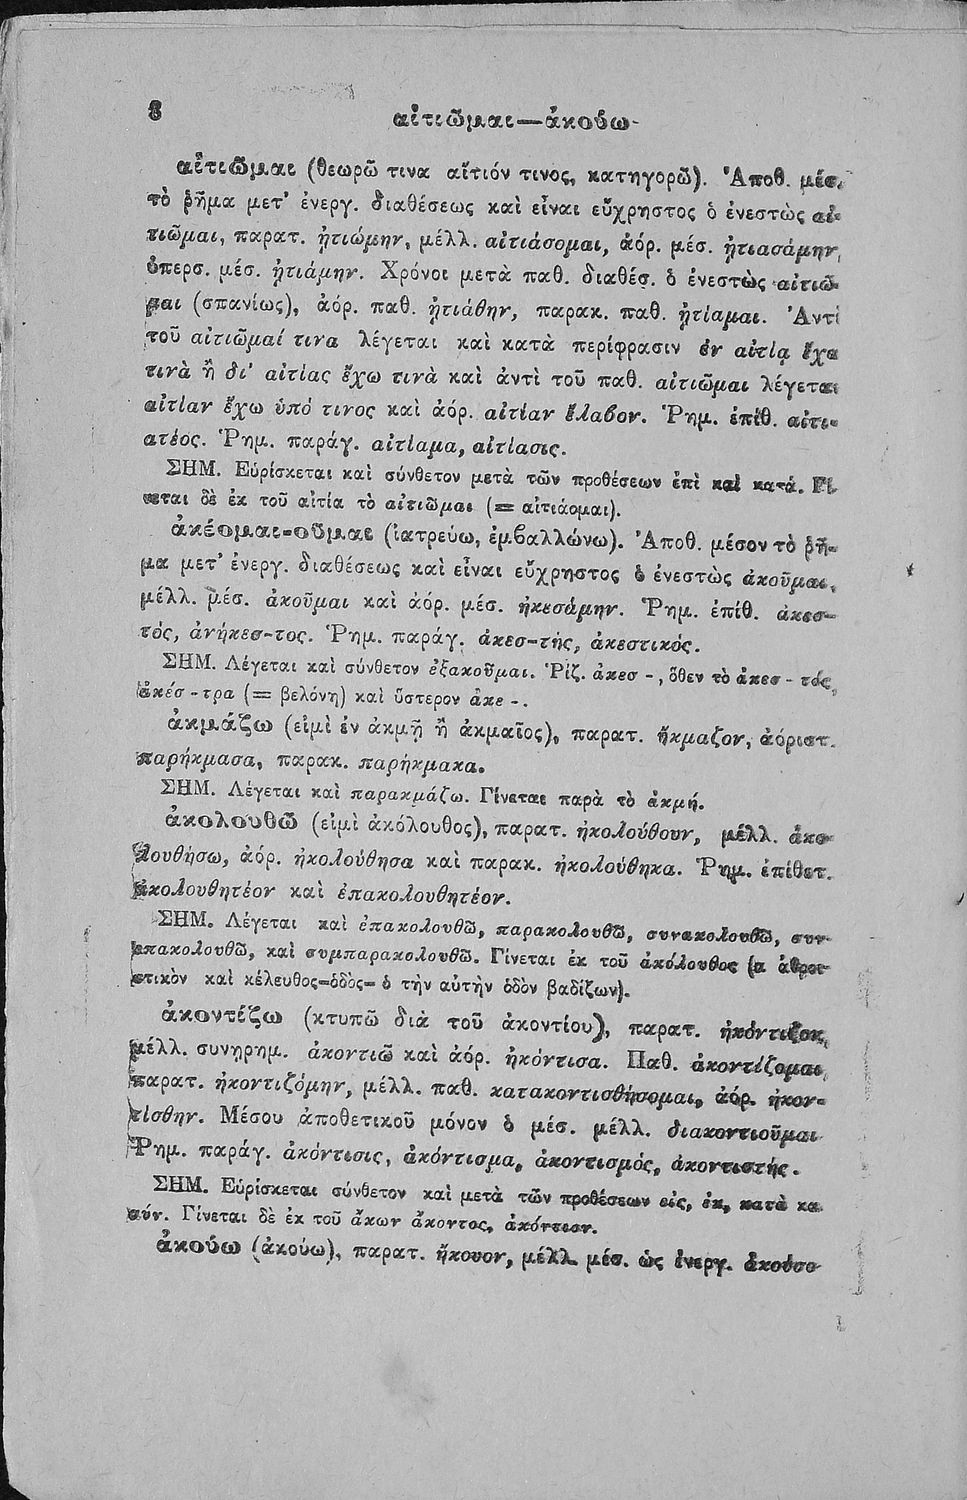 8
αἰτιῶμαι—ἀκούω
αἰτιῶμαι (θεωρῶ τινα αἴτιόν τινος, κατηγορῶ). Ἀποθ. μέσ.
τὸ ῥῆμα μετ' ἐνεργ. διαθέσεως καὶ εἶναι εὔχρηστος ὁ ἐνεστὼς αἰ-
τιῶμαι, παρατ. ᾐτιώμην, μέλλ. αἰτιάσομαι, ἀόρ. μέσ. ᾐτιασάμην,
ὑπερσ. μέσ. ᾐτιάμην. Χρόνοι μετὰ παθ. διαθέσ. ὁ ἐνεστὼς αἰτιῶ-
μαι (σπανίως), ἀόρ. παθ. ᾐτιάθην, παρακ. παθ. ᾐτίαμαι. Ἀντὶ
τοῦ αἰτιῶμαί τινα λέγεται καὶ κατὰ περίφρασιν ἐν αἰτίᾳ ἔχω
τινὰ ἢ δι' αἰτίας ἔχω τινὰ καὶ ἀντὶ τοῦ παθ. αἰτιῶμαι λέγεται
αἰτίαν ἔχω ὑπό τινος καὶ ἀόρ. αἰτίαν ἔλαβον. Ῥημ. ἐπίθ. αἰτι-
ατέος. Ῥημ. παράγ. αἰτίαμα, αἰτίασις.
ΣΗΜ. Εὑρίσκεται καὶ σύνθετον μετὰ τῶν προθέσεων ἐπὶ καὶ κατά. Γί-
νεται δὲ ἐκ τοῦ αἰτία τὸ αἰτιῶμαι (= αἰτιάομαι).
ἀκέομαι-οῦμαι (ἰατρεύω, ἐμβαλλώνω). Ἀποθ. μέσον τὸ ῥῆ-
μα μετ' ἐνεργ. διαθέσεως καὶ εἶναι εὔχρηστος ὁ ἐνεστὼς ἀκοῦμαι,
μέλλ. μέσ. ἀκοῦμαι καὶ ἀόρ. μέσ. ἠκεσάμην. Ῥημ. ἐπίθ. ἀκεσ-
τός, ἀνήκεσ-τος. Ῥημ. παράγ. ἀκεσ-τής, ἀκεστικός.
ΣΗΜ. Λέγεται καὶ σύνθετον ἐξακοῦμαι. Ῥίζ. ἀκεσ -, ὅθεν τὸ ἀκεσ - τός,
ἀκέσ - τρα (= βελόνη) καὶ ὕστερον ἀκε -.
ἀκμάζω (εἰμὶ ἐν ἀκμῇ ἢ ἀκμαῖος), παρατ. ἤκμαζον, ἀόριστ.
παρήκμασα, παρακ. παρήκμακα.
ΣΗΜ. Λέγεται καὶ παρακμάζω. Γίνεται παρὰ τὸ ἀκμή.
ἀκολουθῶ (εἰμὶ ἀκόλουθος), παρατ. ἠκολούθουν, μέλλ. ἀκο-
λουθήσω, ἀόρ. ἠκολούθησα καὶ παρακ. ἠκολούθηκα. Ῥημ. ἐπίθετ.
ἀκολουθητέον καὶ ἐπακολουθητέον.
ΣΗΜ. Λέγεται καὶ ἐπακολουθῶ, παρακολουθῶ, συνακολουθῶ, συν-
επακολουθῶ, καὶ συμπαρακολουθῶ. Γίνεται ἐκ τοῦ ἀκόλουθος (α ἀθροι-
στικὸν καὶ κέλευθος=ὁδὸς= ὁ τὴν αὐτὴν ὁδὸν βαδίζων).
ἀκοντίζω (κτυπῶ διὰ τοῦ ἀκοντίου), παρατ. ἠκόντιζον,
μέλλ. συνηρημ. ἀκοντιῶ καὶ ἀόρ. ἠκόντισα. Παθ. ἀκοντίζομαι,
παρατ. ἠκοντιζόμην, μέλλ. παθ. κατακοντισθήσομαι, ἀόρ. ἠκον-
τίσθην. Μέσου ἀποθετικοῦ μόνον ὁ μέσ. μέλλ. διακοντιοῦμαι
Ῥημ. παράγ. ἀκόντισις, ἀκόντισμα, ἀκοντισμός, ἀκοντιστής.
ΣΗΜ. Εὑρίσκεται σύνθετον καὶ μετὰ τῶν προθέσεων εἰς, ἐκ, κατὰ κα
σύν. Γίνεται δὲ ἐκ τοῦ ἄκων ἄκοντος, ἀκόντισν.
ἀκούω (ἀκούω), παρατ. ἤκουον, μέλλ. μέσ. ὡς ἐνεργ. ἀκούσο-